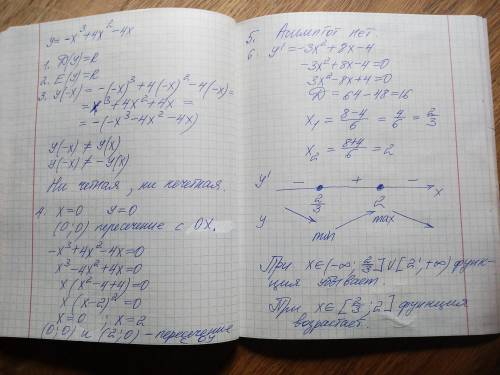 y=-x³+4x²-4x
1. D(y)=R
2. E(y)=R
3. y(-x)=-(-x)³+4(-x)²-4(-x)=
=x³+4x²+4x=
=-(-x³-4x²-4x)
y(-x)≠y(x)
y(-x)≠-y(x)
Ни четная, ни нечетная.
4. x=0 y=0
(0;0) пересечение с OX.
-x³+4x²-4x=0
x³-4x²+4x=0
x(x²-4+4)=0
x(x-2)²=0
x=0 ; x=2
(0;0) и (2;0) - пересечение
5. Асимптот нет.
6. y'=-3x²+8x-4
-3x²+8x-4=0
3x²-8x+4=0
D=64-48=16
x₁=(8-4)/6=4/6=2/3
x₂=(8+4)/6=2
y' - + - x
2/3 2
y min max
При x∈(-∞;2/3]∪[2;+∞) функ-
ция убывает.
При x∈[2/3;2] функция
возрастает.